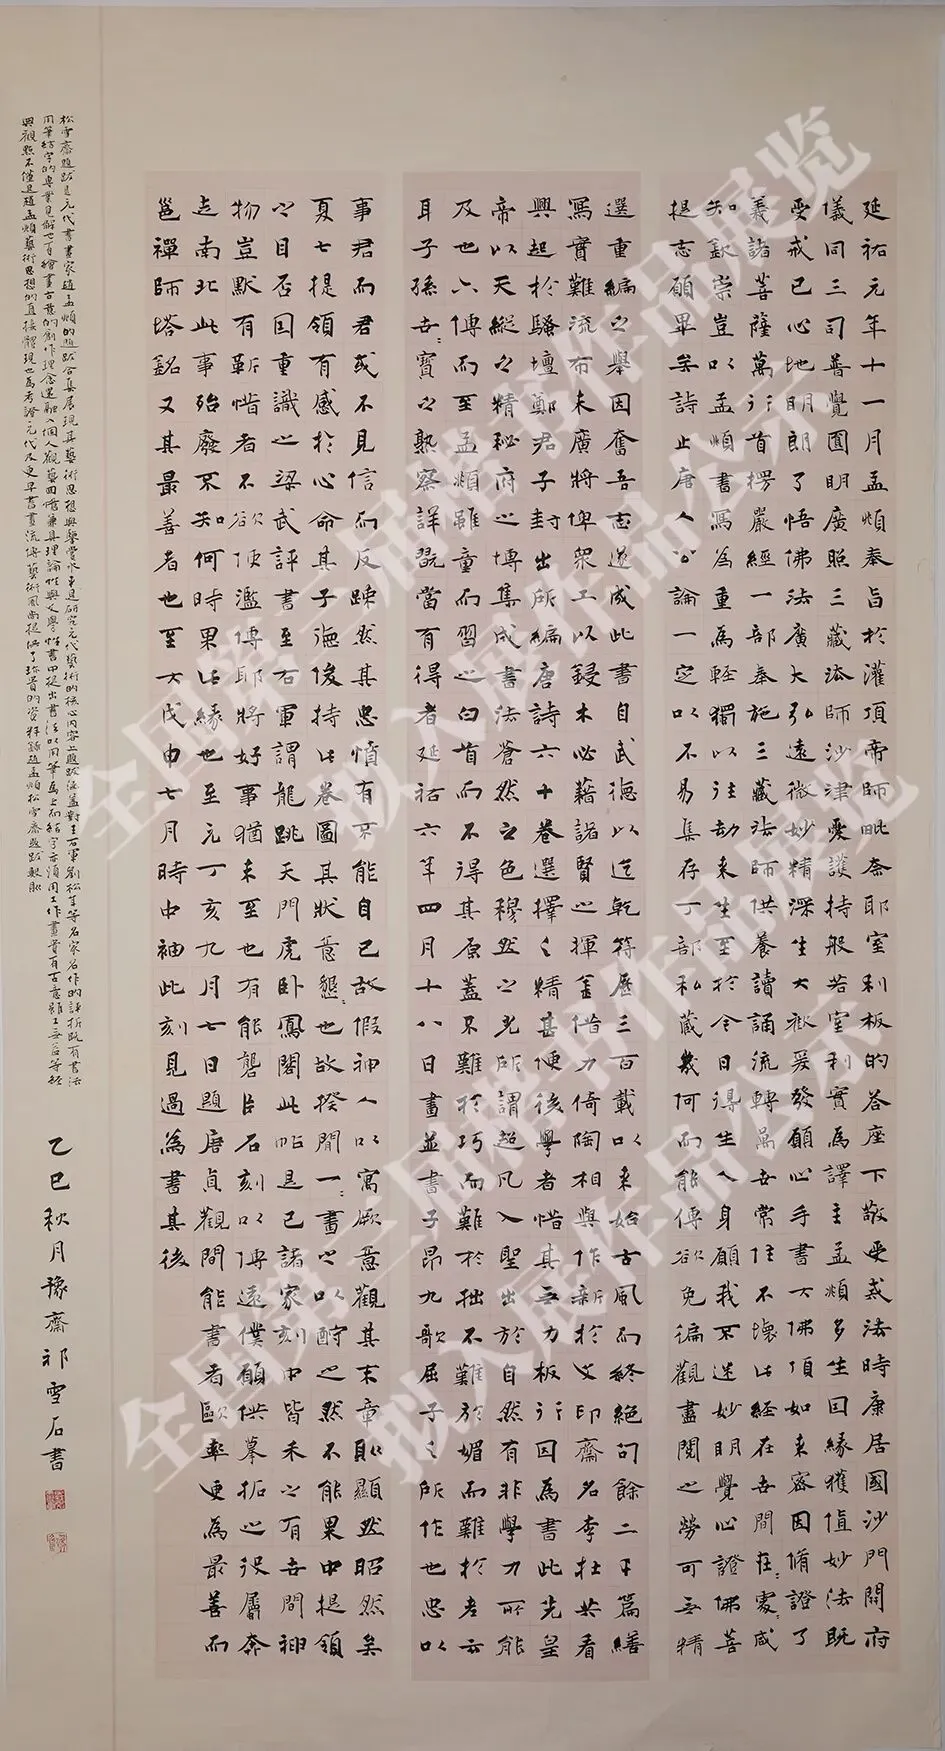 延祐元年十一月孟頫奉旨於灌頂帝師毗奈耶室利板的答座下敬受戒法時康居國沙門開府
儀同三司普覺圓明廣照三藏法師沙津愛護持般若室利實為譯主孟頫多生因緣獲值妙法既
受戒已心地明朗了悟佛法廣大弘遠微妙精深生大歡爰發願心手書大佛頂如來密因脩證了
義諸菩薩萬行首楞嚴經一部奉施三藏法師供養讀誦流轉萬世常住不壞此經在世間在處咸
知欽崇豈以孟頫書寫為重為輕獨以往劫來生至於今日得生人身願我不迷妙明覺心證佛菩
提志願畢矣詩止唐人公論一定以不易集存丁部私藏幾何而能傳欲免徧觀盡閱之勞可無精
選重編之舉因奮吾志遂成此書自武德以迄乾符歷三百載以來始古風而終絕句餘二千篇繕
寫實難流布未廣將俾眾工以鋟木必藉諸賢之揮金借力倚陶相與作新於文印齋名李杜共看
興起於騷壇鄭君子封出所編唐詩六十卷選擇之精甚便後學者惜其無力板行因為書此光皇
帝以天縱之精秘府之博集成書法蒼然之色穆然之光所謂超凡入聖出於自然有非學力所能
及也六傳而至孟頫雖童而習之白首而不得其原蓋不難於巧而難於拙不難於媚而難於老云
耳子孫世寶之熟察詳翫當有得者延祐六年四月十八日畫並書子昂九歌屈子之所作也忠以
事君而君或不見信而反疎然其忠憤有不能自已故假神人以寓厥意觀其末章則顯然昭然矣
夏七提領有感於心命其子德俊持此卷圖其狀意懇也故揆閒一書之以酧之然不能果中提領
之目否因重識之梁武評書至右軍謂龍跳天門虎卧鳳閣此帖是已諸家刻中皆未之有世間神
物豈默有靳惜者不欲便濫傳耶將好事猶未至也有能礱臣石刻以傳遠僕願供摹拓之役屬奔
走南北此事殆廢不知何時果此緣也至元丁亥九月七日題唐貞觀間能書者歐率更為最善而
邕禪師塔銘又其最善者也至大戊申七月時中袖此刻見過為書其後
松雪齋題跋是元代書畫家趙孟頫的題跋合集展現其藝術思想與鑒賞水平是研究元代藝術的核心內容題跋涵蓋對王右軍劉松年等名家名作的評析既有書法
用筆結字的專業見解也有繪畫古意的創作理念還融入個人觀藝回憶兼具理論性與文學性書中提出書法以用筆為上而結字亦須用工作畫貴有古意雖工無益等經
典觀點不僅是趙孟頫藝術思想的直接體現也為考證元代及更早書畫流傳藝術風尚提供了珍貴的資料錄趙孟頫松雪齋題跋數則
乙巳秋月豫齋祁雪石書
全国第三届楷书作品展览
拟入展作品公示
全国第三届楷书作品展览
拟入展作品公示